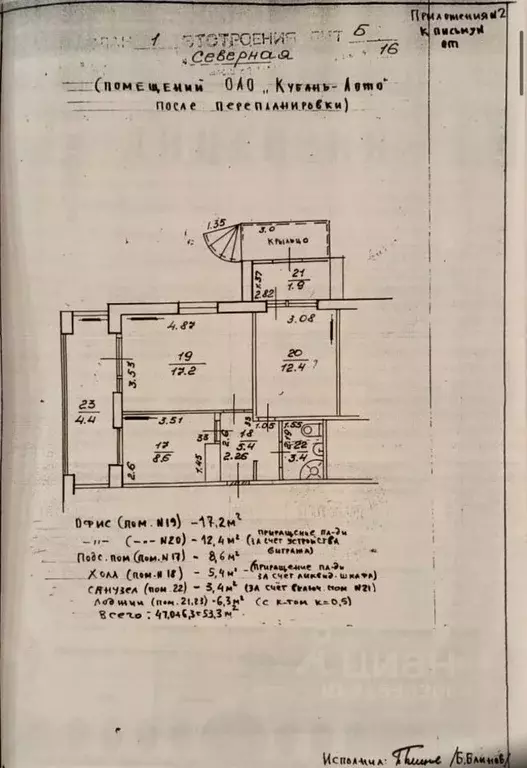 Приложения №2
к письму
от
ПЛАН 1 ЭТ СТРОЕНИЯ ЛИТ Б/16
Северная
(помещений ОАО „Кубань-Лото"
после перепланировки)
1.35
3.0
крыльцо
1.37
21
1.9
2.82
4.87
3.08
19
17.2
3.53
20
12.4
23
4.4
3.51
1.05
1.55
17
8.6
2.6
1.45
18
5.4
2.26
2.19
22
3.4
2.6
Офис (пом. №19) -17,2 м²
-"- (-"- №20) -12,4 м² (приращение пл-ди за счет устройства
Подс. пом (пом. №17) - 8,6 м²
Холл (пом. № 18) - 5,4 м² (приращение пл-ди за счет ликвид. шкафа)
Санузел (пом. 22) - 3,4 м² (за счет включ. пом №21)
Лоджии (пом. 21,23) -6,3 м² (с к-том к=0,5)
Всего: 47,0+6,3=53,3 м²
Исполнил: /Б.Блинов/